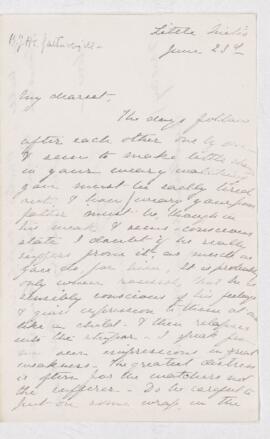 Little
June 23rd
My dearest,
The days follow
after each other one by one
I seem to make little
in your weary watching
you must be sadly tired
out. How weary your poor
father must be, though in
his weak & semi-conscious
state I doubt if he really
suffers from it, as much as
you do for him, it is probably
only when roused, that he is
sensibly conscious of his feelings
& gives expression to them at all
like a child. & then relapses
into the stupor. I speak from
my own impressions in great
weakness. The greatest distress
is often for the watchers not
the sufferer. Do be careful to
put on some wrap in the